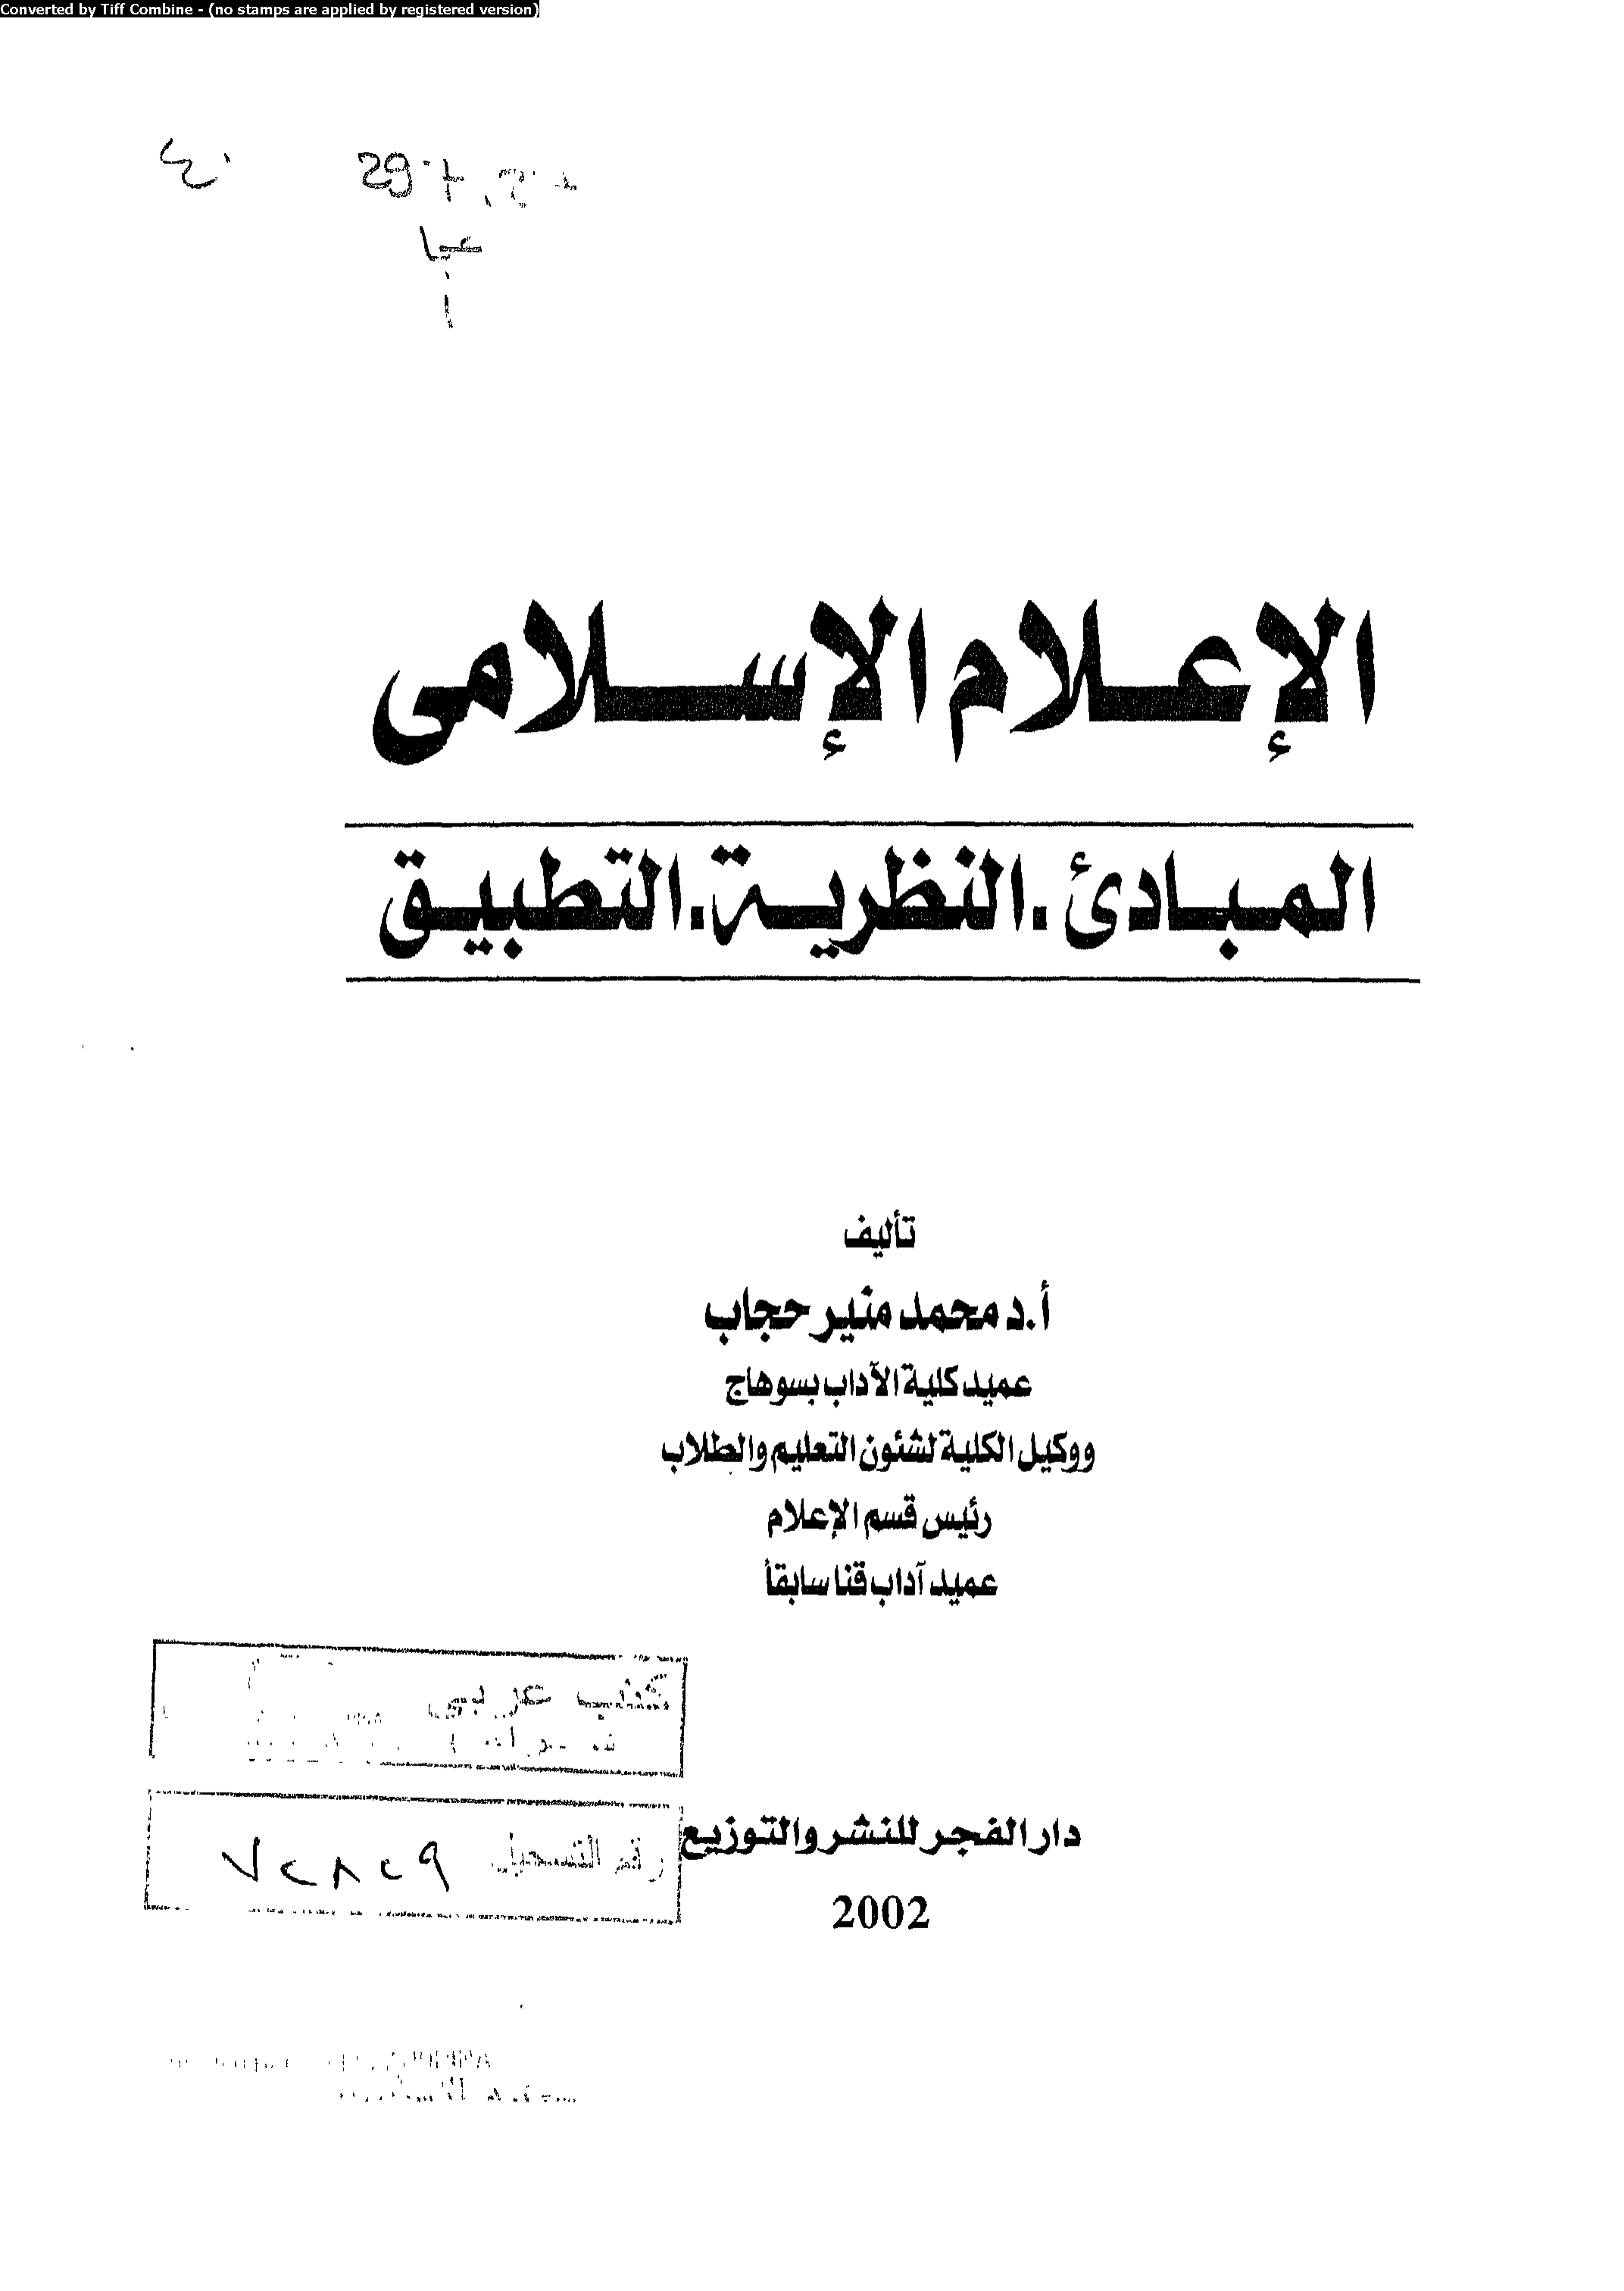 Converted by Tiff Combine - (no stamps are applied by registered version)
الإعلام الإسلامى
المبادئ . النظرية . التطبيق
تأليف
أ.د محمد منير حجاب
عميد كلية الآداب بسوهاج
ووكيل الكلية لشئون التعليم والطلاب
رئيس قسم الإعلام
عميد آداب قنا سابقاً
كتب عربى
دار الفجر للنشر والتوزيع
رقم التسجيل ٧٢٨٢٩
2002